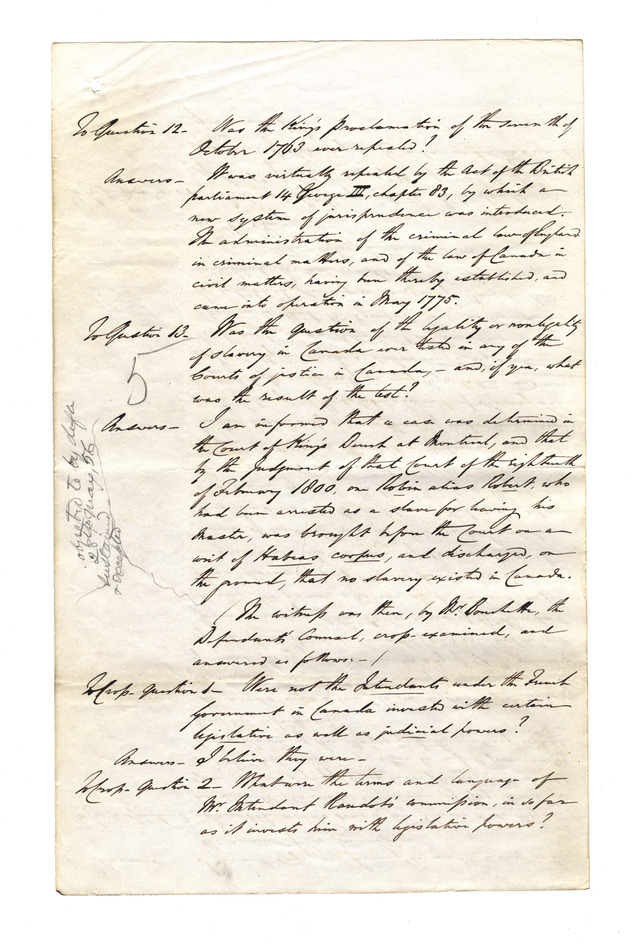 To Question 12 - Was the King's Proclamation of the seventh of
October 1763 ever repealed?
Answers - It was virtually repealed by the Act of the British
parliament 14 George III, chapter 83, by which a
new system of jurisprudence was introduced.
The administration of the criminal law of England
in criminal matters, and of the law of Canada in
civil matters, having been thereby established, and
came into operation in May 1775.
To Question 13 - Was the question of the legality or nonlegality
of slavery in Canada ever tested in any of the
Courts of justice in Canada, - and, if yea, what
was the result of the test?
5
Answers - I am informed that a case was determined in
the Court of King's Bench at Montreal, and that
by the Judgment of that Court of the eighteenth
of February 1800, one Robin alias Robert, who
had been arrested as a slave for leaving his
Master, was brought before the Court on a
writ of Habeas corpus, and discharged, on
the ground, that no slavery existed in Canada.
objected to by defts
28th May, 56
Sustained
& excepted
(The witness was then, by Mr. , the
Defendants' Counsel, cross-examined, and
answered as follows: - )
To Cross-Question 1 - Were not the Intendants under the French
Government in Canada invested with certain
legislative as well as judicial powers?
Answers - I believe they were -
To Cross-Question 2 - What were the terms and language of
Mr. Intendant Raudot's commission, in so far
as it invests him with legislative powers?